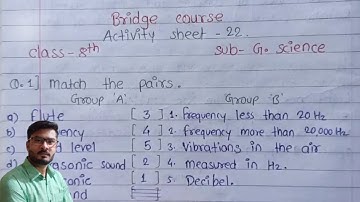 Bridge course
Activity sheet - 22.
class - 8th sub- G. science
Q.1] Match the pairs.
Group 'A' Group 'B'
a) flute [ 3 ] 1. Frequency less than 20 Hz
[ 4 ] 2. frequency more than 20,000 Hz
level [ 5 ] 3. Vibrations in the air
sound [ 2 ] 4. measured in Hz.
[ 1 ] 5. Decibel.